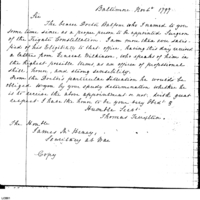 Baltimore Novr 1797.
Sir
The bearer Doctor Balfour who I named to you
some time since as a proper person to be appointed Surgeon
of the Frigate Constellation. I am more than ever satis-
fied of his Eligibility to that office, having this day received
a letter from General Wilkinson, who speaks of him in
the highest possible terms as an officer of professional
skill, honor, and strong sensibility.
From the Doctor's particular situation he would be
obliged to you by your speedy determination whether he
is to receive the above appointment or not. With great
respect I have the honor to be your very Obedt &
Humble Servt
Thomas Truxtun.
The Honble
James McHenry,
Secretary at War
Copy